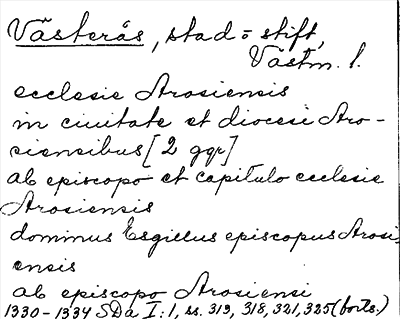 Västerås, stad = stift,
Västm. l.
ecclesie Arosiensis
in ciuitate et diocesi Aro-
siensibus [2 ggr]
ab episcopo et capitulo ecclesie
Arosiensis
dominus Esgillus episcopus Arosi-
ensis
ab episcopo Arosiensi
1330-1334 SDa I:1, ss. 319, 318, 321, 325 (forts.)